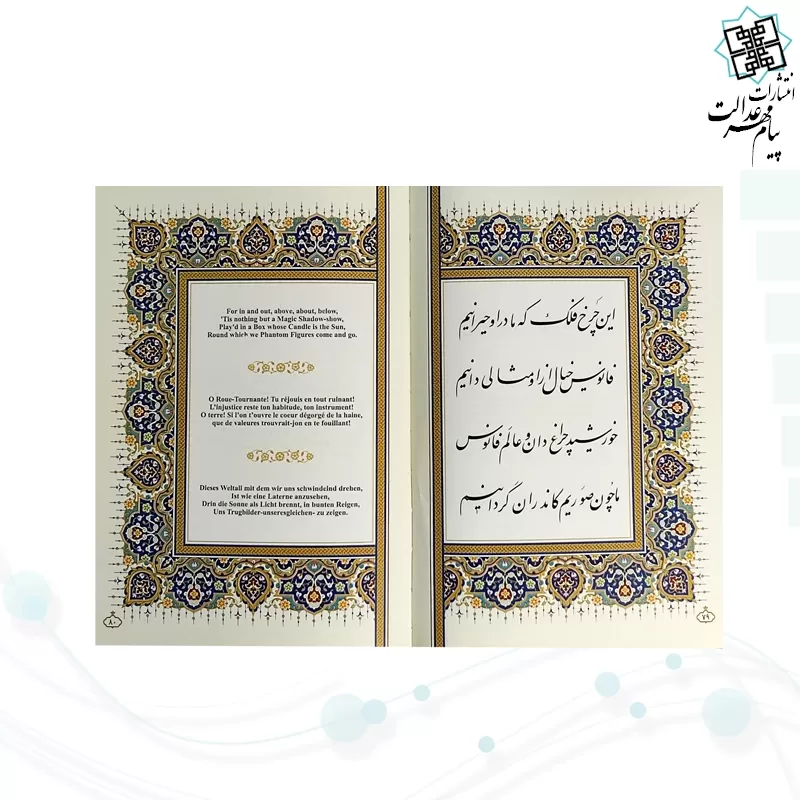 انتشارات
پیام مهر عدالت
این چرخ فلک که ما در او حیرانیم
فانوس خیال از او مثالی دانیم
خورشید چراغ دان و عالم فانوس
ما چون صوریم کاندر آن گردانیم
۷۹
For in and out, above, about, below,
'Tis nothing but a Magic Shadow-show,
Play'd in a Box whose Candle is the Sun,
Round which we Phantom Figures come and go.
O Roue-Tournante! Tu réjouis en tout ruinant!
L'injustice reste ton habitude, ton instrument!
O terre! Si l'on t'ouvre le coeur dégorgé de la haine,
que de valeures trouvralt-jon en te fouillant!
Dieses Weltall mit dem wir uns schwindelnd drehen,
Ist wie eine Laterne anzusehen,
Drin die Sonne als Licht brennt, in bunten Reigen,
Uns Trugbilder-unseresgleichen- zu zeigen.
۸۰